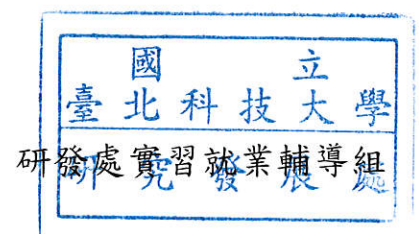 國立
臺北科技大學
研發處實習就業輔導組
研究發展處